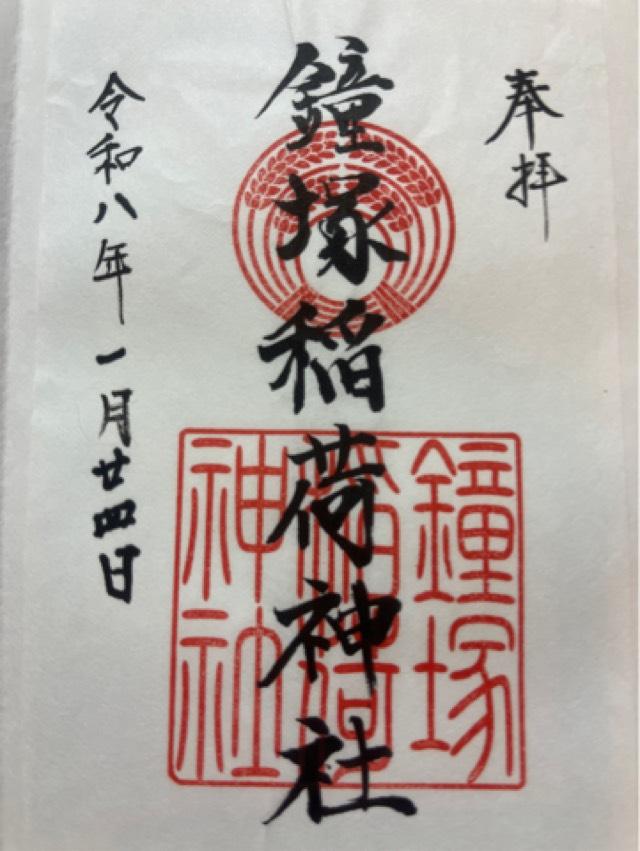 奉拝
鐘塚稲荷神社
鐘塚
稲荷
神社
令和八年一月廿四日